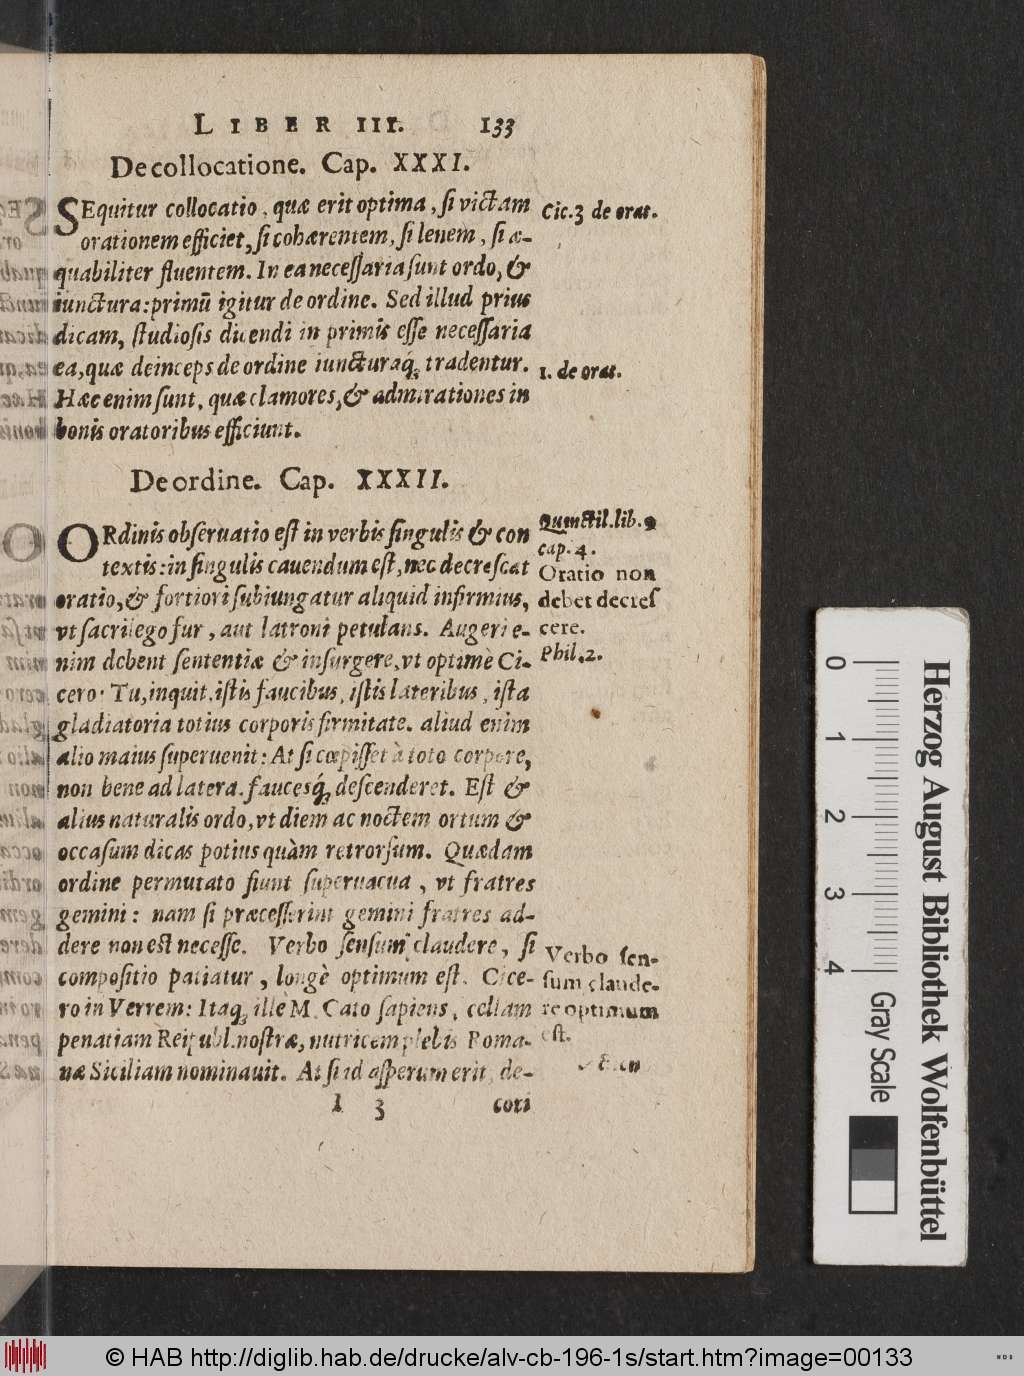 LIBER III. 133
De collocatione. Cap. XXXI.
SEquitur collocatio, quæ erit optima, ſi victam
orationem efficiet, ſi cohærentem, ſi lenem, ſi æ-
quabiliter fluentem. In ea neceſſaria ſunt ordo, &
iunctura: primū igitur de ordine. Sed illud prius
dicam, ſtudioſis dicendi in primis eſſe neceſſaria
ea, quæ deinceps de ordine iuncturaq́; tradentur.
Hæc enim ſunt, quæ clamores, & admirationes in
bonis oratoribus efficiunt.
Cic. 3 de orat.
1. de orat.
De ordine. Cap. XXXII.
ORdinis obſeruatio eſt in verbis ſingulis & con
textis: in ſingulis cauendum eſt, nec decreſcat
oratio, & fortiori ſubiungatur aliquid infirmius,
vt ſacrilego fur, aut latroni petulans. Augeri e-
nim debent ſententiæ & inſurgere, vt optimè Ci-
cero: Tu, inquit, iſtis faucibus, iſtis lateribus, iſta
gladiatoria totius corporis firmitate. aliud enim
alio maius ſuperuenit: At ſi cœpiſſet à toto corpore,
non bene ad latera, faucesq́; deſcenderet. Eſt &
alius naturalis ordo, vt diem ac noctem ortum &
occaſum dicas potius quàm retrorſum. Quædam
ordine permutato fiunt ſuperuacua, vt fratres
gemini: nam ſi præceſſerint gemini fratres ad-
dere non eſt neceſſe. Verbo ſenſum claudere, ſi
compoſitio patiatur, longè optimum eſt. Cice-
ro in Verrem: Itaq; ille M. Cato ſapiens, cellam
penatiam Reipubl. noſtræ, nutricem plebis Roma-
næ Siciliam nominauit. At ſi id aſperum erit, de-
I 3 cori
Quinctil. lib. 9
cap. 4.
Oratio non
debet decreſ
cere.
Phil. 2.
Verbo ſen-
ſum claude-
re optimum
eſt.
Herzog August Bibliothek Wolfenbüttel
0 1 2 3 4
Gray Scale
© HAB http://diglib.hab.de/drucke/alv-cb-196-1s/start.htm?image=00133